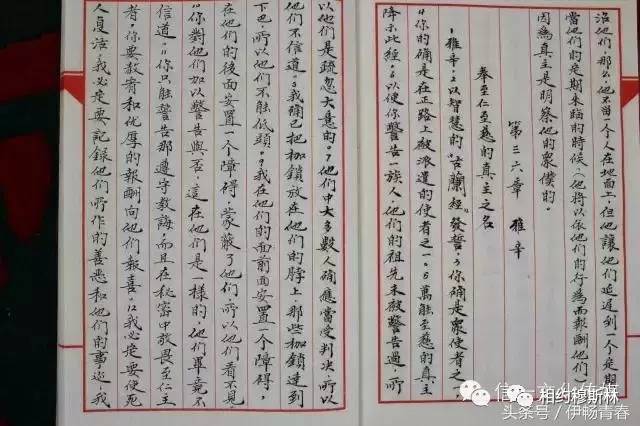 治他們，那么，他不留一个人在地面上，但他讓他們延遲到一个定期
當他們的定期來臨的時候，(他將以依他們的行為而報酬他們)
因為真主是明察他的眾僕的。
第三六章 雅辛
奉至仁至慈的真主之名
1雅辛，2以智慧的“古蘭經”發誓，3你確是眾使者之一，
4你的确是在正路上被派遣的使者之一。5萬能至慈的真主
降示此經，6以便你警告一族人，他們的祖先未被警告過，所
以他們是疏忽大意的。7他們中大多數人确應當受判决，所以
他們不信道。8我确已把枷鎖放在他們的脖上，那些枷鎖達到
下巴，所以他們不能低頭。9我在他們的面前面安置一个障碍，
在他們的後面安置一个障碍，蒙蔽了他們，所以他們看不見。
10你對他們加以警告與否，這在他們是一樣的，他們畢竟不
信道。11你只能警告那遵守教誨，而且在秘密中敬畏至仁主
者，你要赦宥和优厚的報酬向他們報喜。12我必定要使死
人復活，我必定要記録他們所作的善惡和他們的事迹，我
相约穆斯林
头条号／伊畅青春